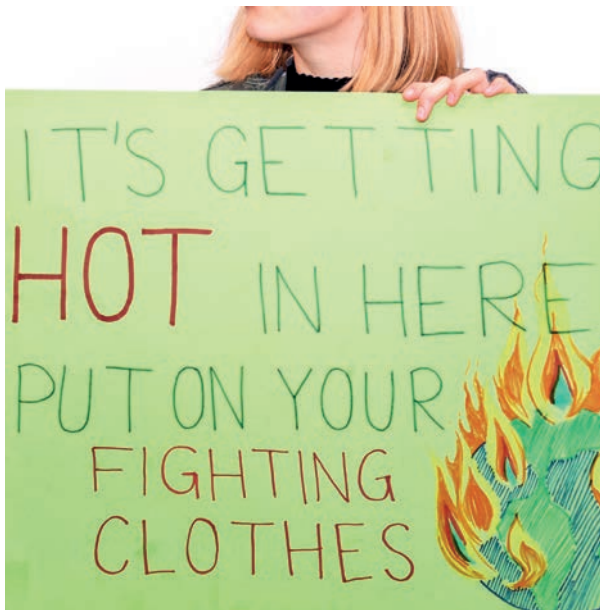 IT'S GETTING
HOT IN HERE
PUT ON YOUR
FIGHTING
CLOTHES